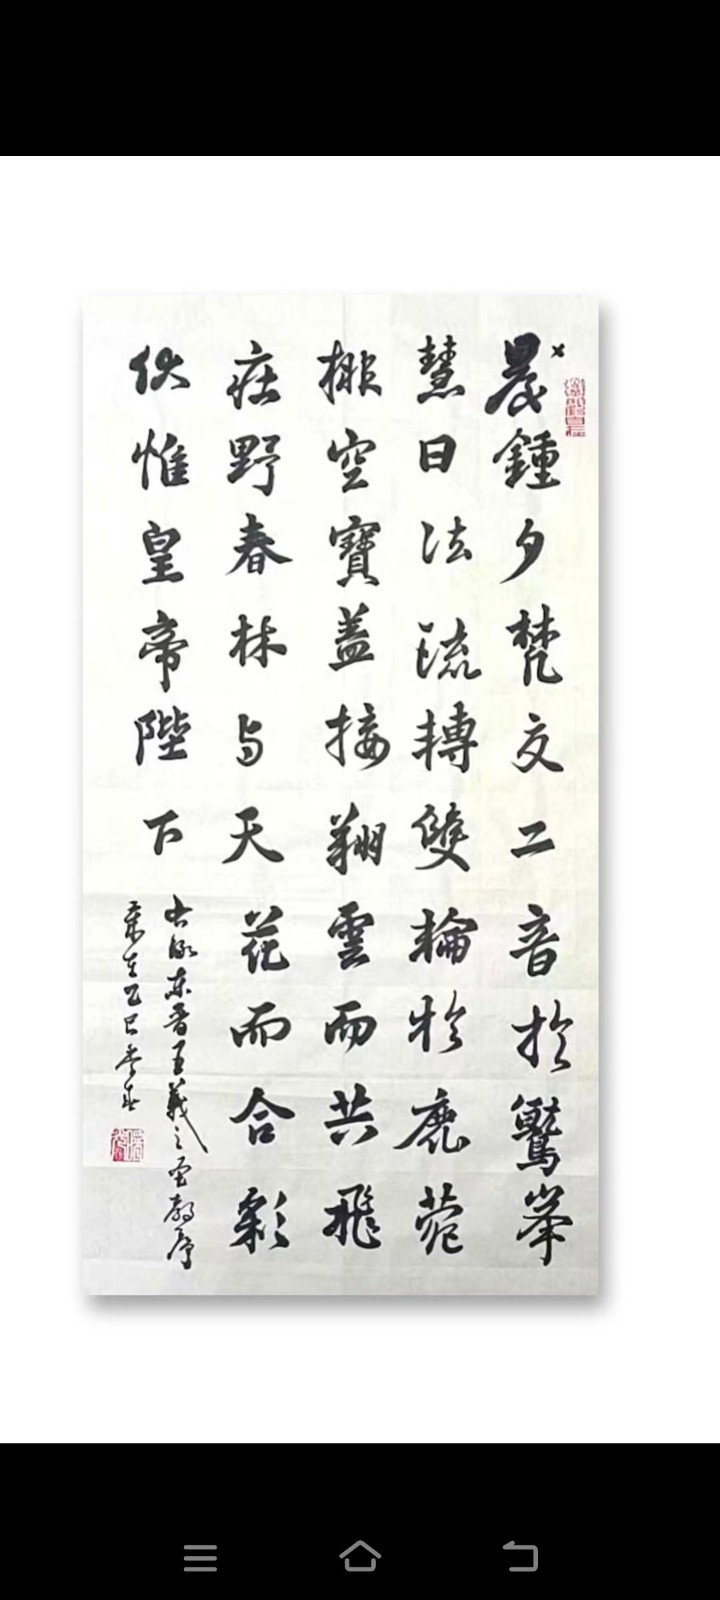 晨鍾夕梵交二音於鷲峯
慧日法流轉雙輪於鹿菀
排空寶盖接翔雲而共飛
莊野春林与天花而合彩
伏惟皇帝陛下
東晋王羲之圣教序
乙巳季春